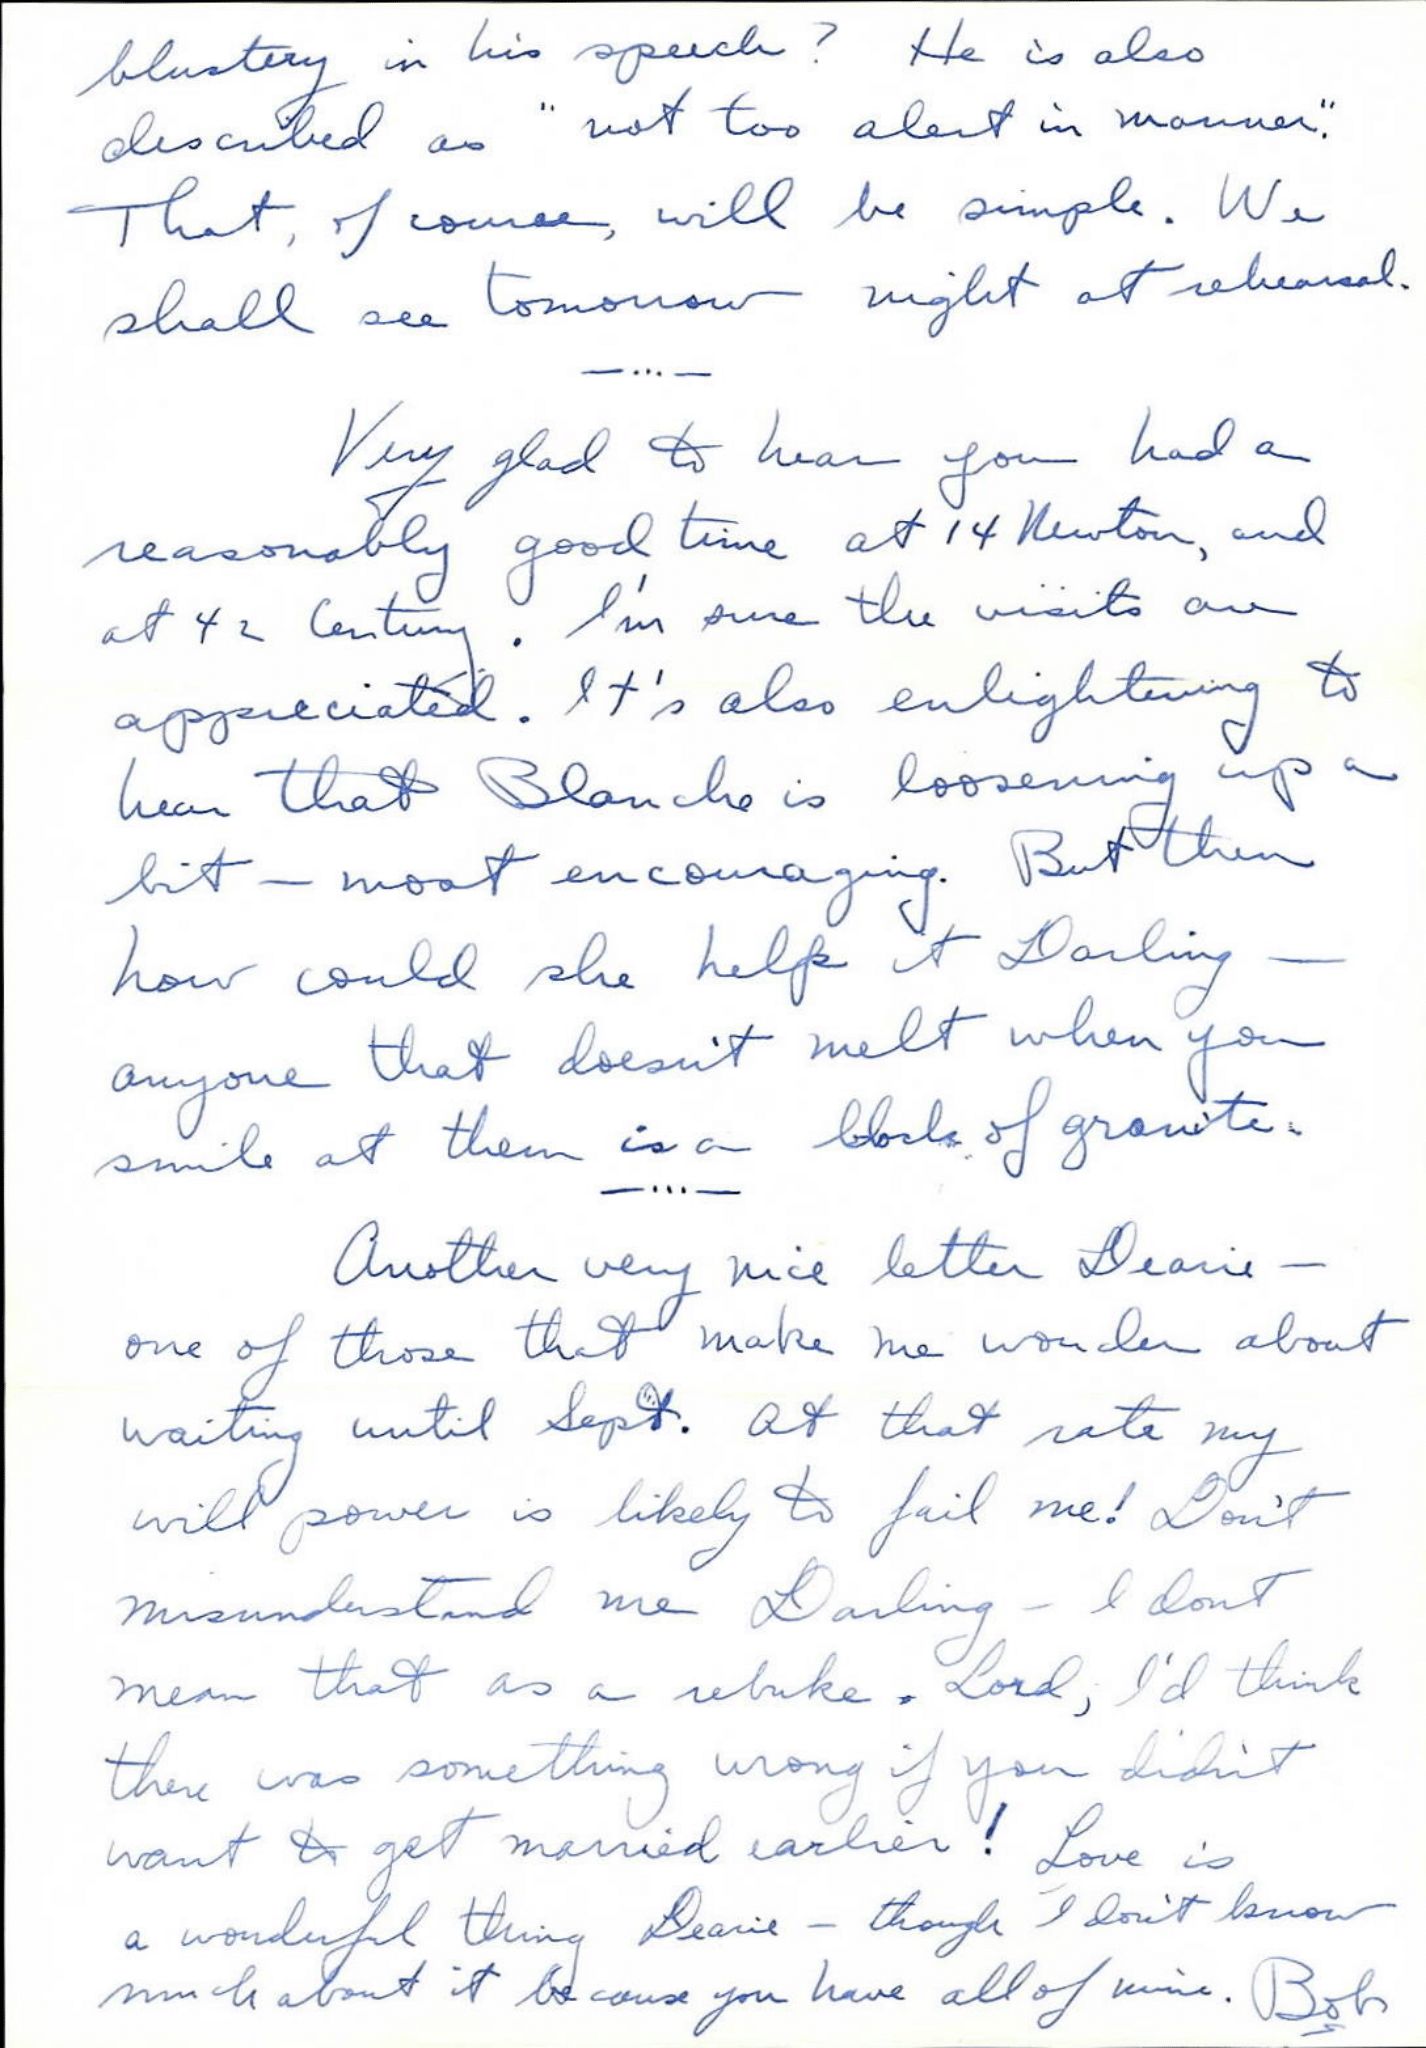 blustery in his speech? He is also
described as "not too alert in manner."
That, of course, will be simple. We
shall see tomorrow night at rehearsal.
—...—
Very glad to hear you had a
reasonably good time at 14 Newton, and
at 42 Century. I'm sure the visits are
appreciated. It's also enlightening to
hear that Blanche is loosening up a
bit — most encouraging. But then
how could she help it Darling —
anyone that doesn't melt when you
smile at them is a block of granite.
—...—
Another very nice letter Dearie —
one of those that make me wonder about
waiting until Sept. At that rate my
will power is likely to fail me! Don't
misunderstand me Darling — I don't
mean that as a rebuke. Lord, I'd think
there was something wrong if you didn't
want to get married earlier! Love is
a wonderful thing Dearie — though I don't know
much about it because you have all of mine. Bob